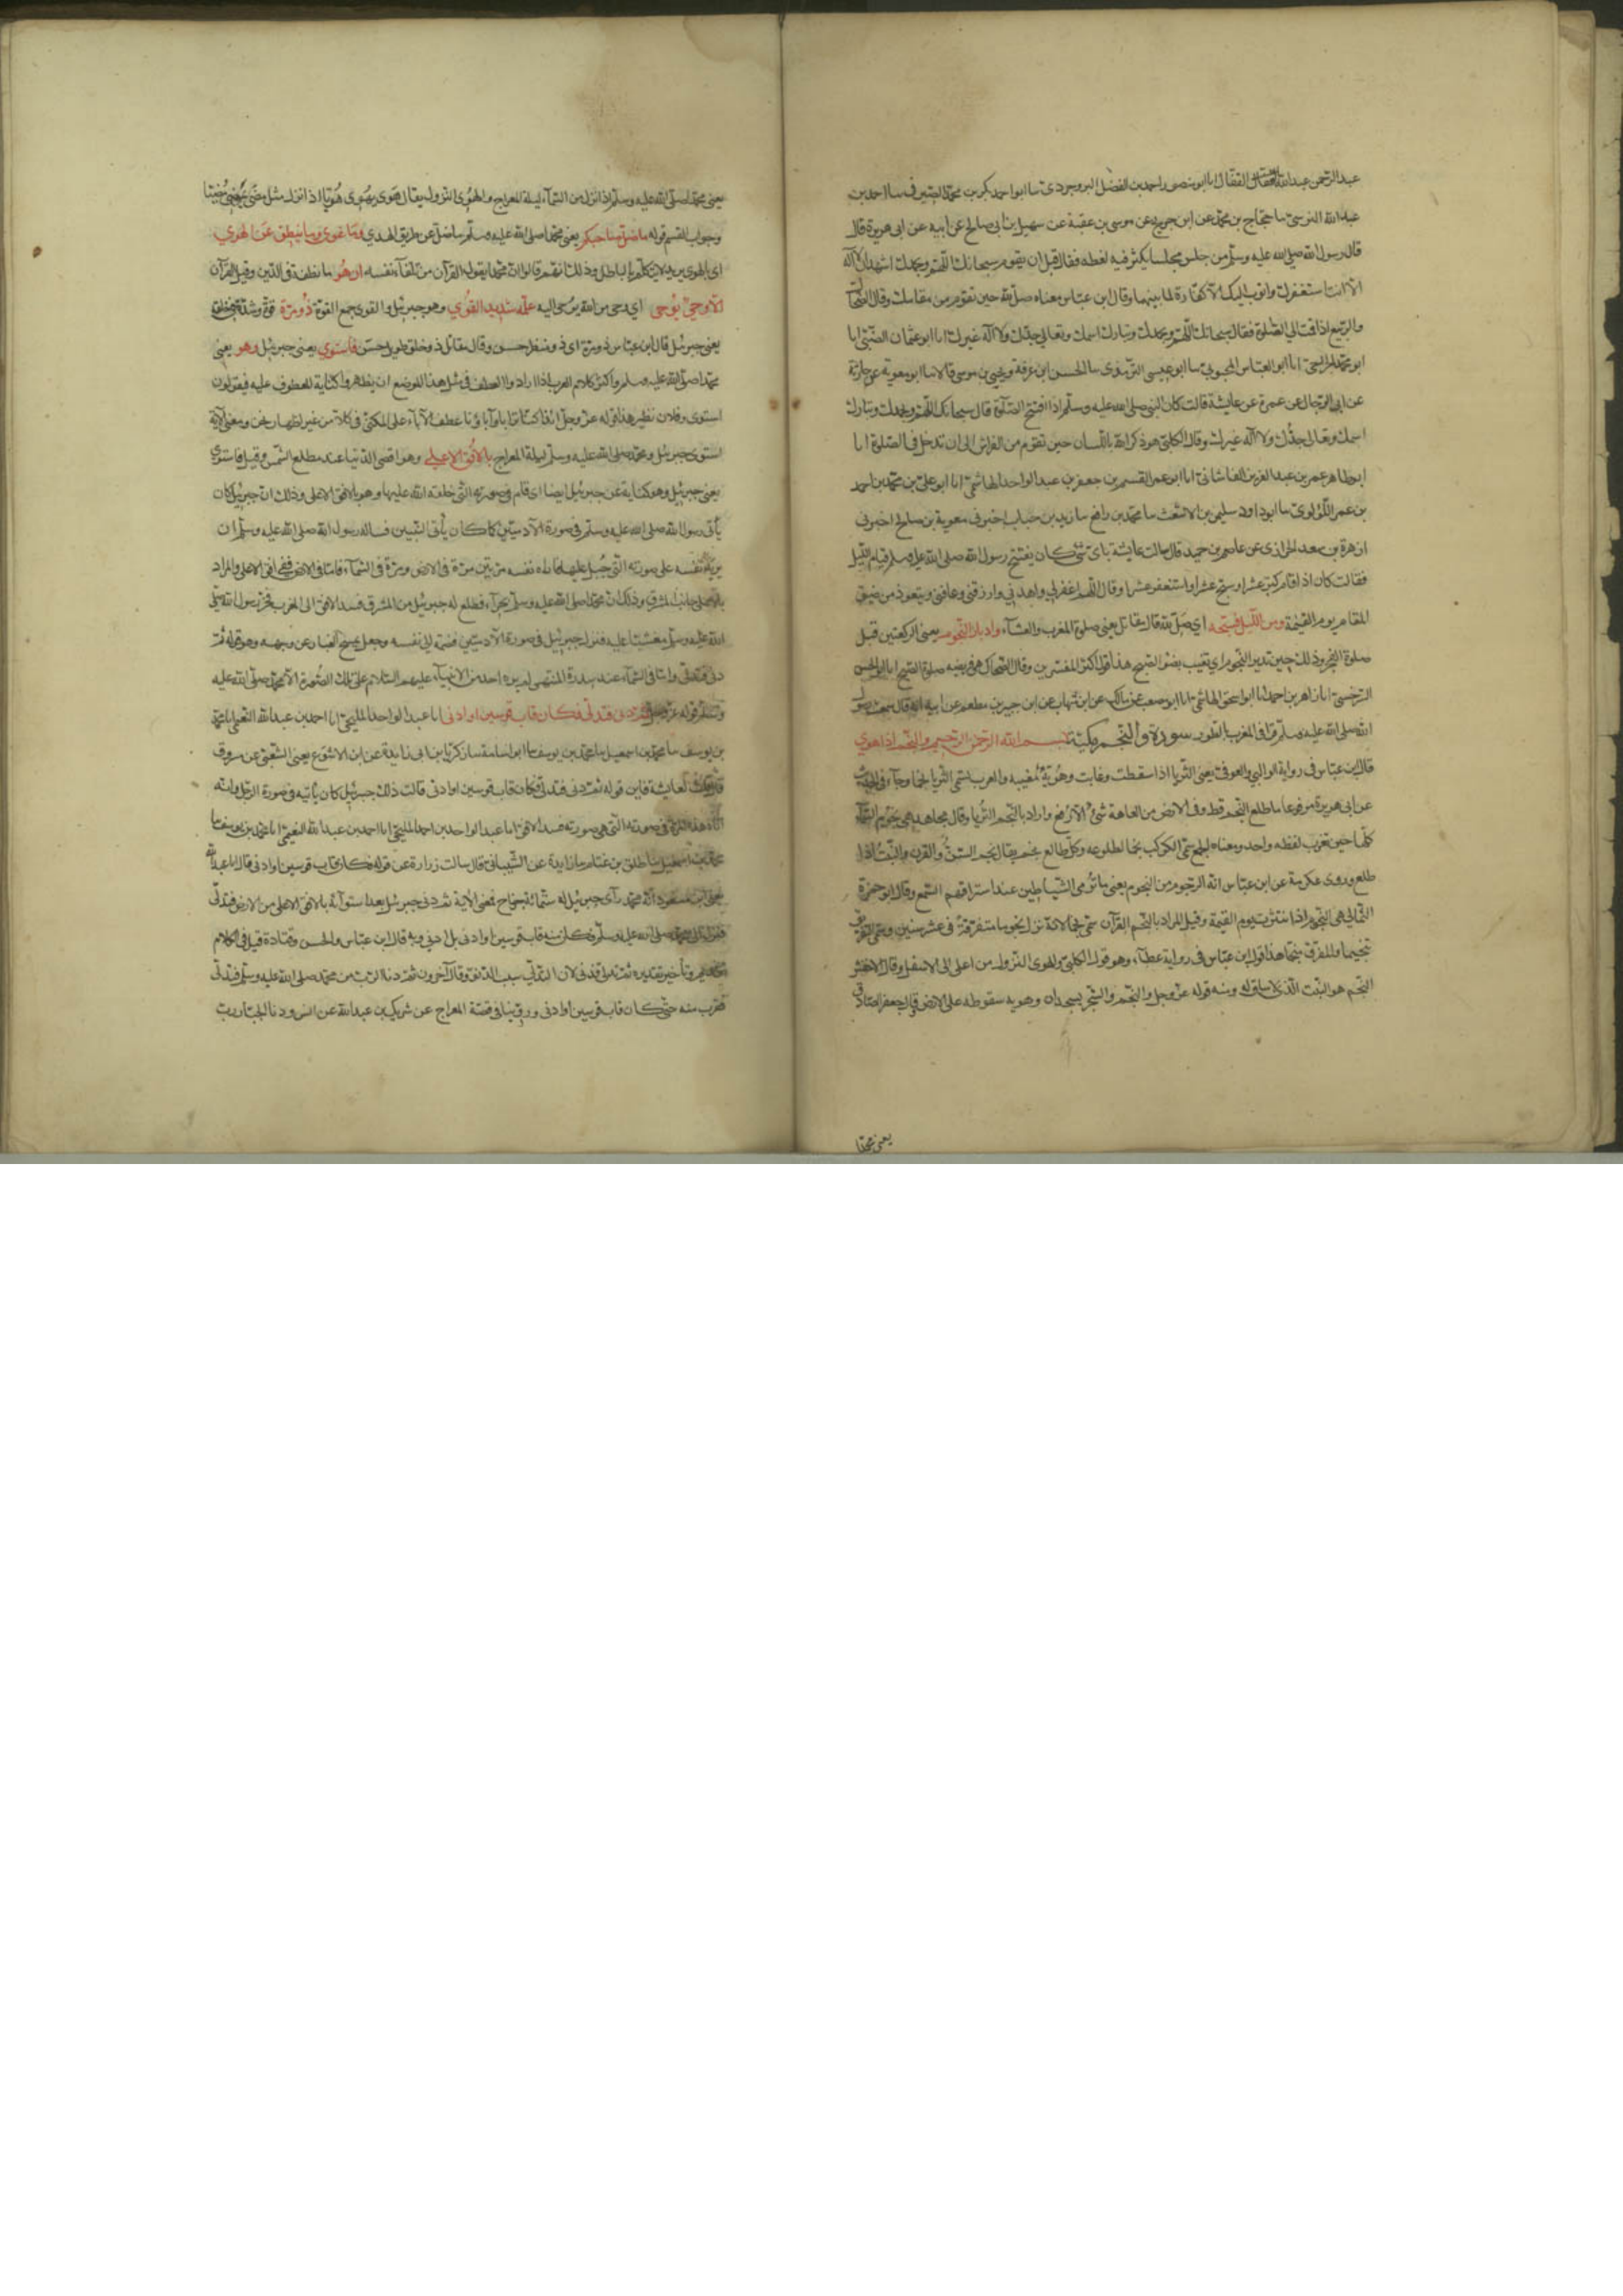 عبد الرحمن عبد الله القفال انا ابو منصور احمد بن الفضل البروجردي سا ابو احمد بكر بن محمد الصيرفي سا احمد بن
عبد الله النرسي سا حجاج بن محمد عن ابن جريج عن موسى بن عقبة عن سهيل بن ابي صالح عن ابيه عن ابي هريرة قال
قال رسول الله صلى الله عليه وسلم من جلس مجلسا يكثر فيه لغطه فقال قبل ان يقوم سبحانك اللهم وبحمدك اشهد ان لا اله
الا انت استغفرك واتوب اليك الا كفارة لما بينهما وقال ابن عباس معناه صل لله حين تقوم من مقامك وقال الضحاك
والربيع اذا قمت الى الصلوة فقال سبحانك اللهم وبحمدك وتبارك اسمك وتعالى جدك ولا اله غيرك انا ابو عثمان الضبي انا
ابو محمد الجراحي انا ابو العباس المحبوبي سا ابو عيسى الترمذي سا الحسن ابن عرفة ويحيى بن موسى قالا سا ابو معوية عن حارثة
عن ابي الرجال عن عمرة عن عايشة قالت كان النبي صلى الله عليه وسلم اذا افتتح الصلوة قال سبحانك اللهم وبحمدك وتبارك
اسمك وتعالى جدك ولا اله غيرك وقال الكلبي هو ذكر الله باللسان حين تقوم من الفراش الى ان تدخل في الصلوة انا
ابو طاهر عمر بن عبد العزيز الفاشاني انا ابو عمر القسم بن جعفر بن عبد الواحد الهاشمي انا ابو علي بن محمد بن احمد
بن عمر اللؤلوي سا ابو داود سليمن بن الاشعث سا محمد بن رافع سا زيد بن حباب اخبرني معوية بن صالح اخبرني
ازهر بن سعد الحرازي عن عاصم بن حميد قال سالت عايشة باي شي كان يفتتح رسول الله صلى الله عليه وسلم قيام الليل
فقالت كان اذا قام كبر عشرا وسبح عشرا واستغفر عشرا وقال اللهم اغفر لي واهدني وارزقني وعافني ويتعوذ من ضيق
المقام يوم القيمة ومن الليل فسبحه اي صل لله قال مقاتل يعني صلوة المغرب والعشاء وادبار النجوم يعني الركعتين قبل
صلوة الفجر وذلك حين تدبر النجوم اي تغيب بضوء الصبح هذا قول اكثر المفسرين وقال الضحاك هي فريضة صلوة الصبح انا ابو الحسن
السرخسي انا زاهر بن احمد انا ابو اسحق الهاشمي انا ابو مصعب عن مالك عن ابن شهاب عن ابن جبير بن مطعم عن ابيه انه قال سمعت رسول
الله صلى الله عليه وسلم قرا في المغرب بالطور سورة والنجم مكية بسم الله الرحمن الرحيم والنجم اذا هوى
قال ابن عباس في رواية الوالبي والعوفي يعني الثريا اذا سقطت وغابت وهويه مغيبه والعرب تسمي الثريا نجما وجاء في الحديث
عن ابي هريرة مرفوعا ما طلع النجم قط وفي الارض من العاهة شيء الا رفع واراد بالنجم الثريا وقال مجاهد هي نجوم السماء
كلها حين تغرب لفظه واحد ومعناه الجمع سمي الكوكب نجما لطلوعه وكل طالع نجم يقال نجم السن والقرن والنبت اذا
طلع وروى عكرمة عن ابن عباس انه الرجوم من النجوم يعني ما ترمى الشياطين عند استراقهم السمع وقال ابو حمزة
الثمالي هي النجوم اذا انتثرت يوم القيمة وقيل المراد بالنجم القرآن سمي نجما لانه نزل نجوما متفرقة في عشرين سنين وسمي التفريق
تنجيما والمفرق منجما هذا قول ابن عباس في رواية عطاء وهو قول الكلبي والهوى النزول من اعلى الى الاسفل وقال الاخفش
النجم هو النبت الذي لا ساق له ومنه قوله عز وجل والنجم والشجر يسجدان وهويه سقوطه على الارض وقال جعفر الصادق
يعني محمدا
يعني محمدا صلى الله عليه وسلم اذا نزل من السماء ليلة المعراج والهوي النزول يقال هوى يهوي هويا اذا نزل مثل مضى يمضي مضيا
وجواب القسم قوله ما ضل صاحبكم يعني محمدا صلى الله عليه وسلم ما ضل عن طريق الهدى وما غوى وما ينطق عن الهوى
اي بالهوى يريد لا يتكلم بالباطل وذلك انهم قالوا ان محمدا يقول القرآن من تلقاء نفسه ان هو ما نطقه في الدين وقيل القرآن
الا وحي يوحى اي وحي من الله يوحى اليه علمه شديد القوى وهو جبرئيل والقوى جمع القوة ذو مرة قوة وشدة في خلقه
يعني جبرئيل قال ابن عباس ذو مرة اي ذو منظر حسن وقال مقاتل ذو خلق طويل حسن فاستوى يعني جبرئيل وهو يعني
محمدا صلى الله عليه وسلم واكثر كلام العرب اذا ارادوا العطف في مثل هذا الموضع ان يظهروا كناية المعطوف عليه فيقولون
استوى وفلان نظير هذا قوله عز وجل ائذا كنا ترابا وآباؤنا عطف الآباء على المكني في كنا من غير اظهار نحن ومعنى الآية
استوى جبرئيل ومحمد صلى الله عليه وسلم ليلة المعراج بالافق الاعلى وهو اقصى الدنيا عند مطلع الشمس وقيل فاستوى
يعني جبرئيل وهو كناية عن جبرئيل ايضا اي قام في صورته التي خلقه الله عليها وهو بالافق الاعلى وذلك ان جبرئيل كان
يأتي رسول الله صلى الله عليه وسلم في صورة الآدميين كما كان يأتي النبيين فساله رسول الله صلى الله عليه وسلم ان
يريه نفسه على صورته التي جبل عليها فاراه نفسه مرتين مرة في الارض ومرة في السماء فاما في الارض ففي افق الاعلى والمراد
بالاعلى جانب المشرق وذلك ان محمدا صلى الله عليه وسلم بحراء فطلع له جبرئيل من المشرق فسد الافق الى المغرب فخر رسول الله صلى
الله عليه وسلم مغشيا عليه فنزل جبرئيل في صورة الآدميين فضمه الى نفسه وجعل يمسح الغبار عن وجهه وهو قوله ثم
دنى فتدلى واما في السماء عند سدرة المنتهى لم يره احد من الانبياء عليهم السلام على تلك الصورة الا محمد صلى الله عليه
وسلم قوله عز وجل ثم دنى فتدلى فكان قاب قوسين او ادنى انا عبد الواحد المليحي انا احمد بن عبد الله النعيمي انا محمد
بن يوسف سا محمد بن اسمعيل سا محمد بن يوسف سا ابو اسامة سا زكريا بن ابي زايدة عن ابن الاشوع يعني الشعبي عن مسروق
قال قلت لعايشة فاين قوله ثم دنى فتدلى فكان قاب قوسين او ادنى قالت ذلك جبرئيل كان يأتيه في صورة الرجل وانه
اتاه هذه المرة في صورته التي هي صورته فسد الافق انا عبد الواحد بن احمد المليحي انا احمد بن عبد الله النعيمي انا محمد بن يوسف سا
محمد بن اسمعيل سا طلق بن غنام سا زايدة عن الشيباني قال سالت زرارة عن قوله فكان قاب قوسين او ادنى قال انا عبد الله
يعني ابن مسعود انه محمد رآى جبرئيل له ستمائة جناح فمعنى الآية ثم دنى جبرئيل بعد استوائه بالافق الاعلى من الارض فتدلى
فنزل الى محمد صلى الله عليه وسلم فكان منه قاب قوسين او ادنى بل ادنى وبه قال ابن عباس والحسن وقتادة قيل في الكلام
تقديم وتأخير تقديره ثم تدلى فدنى لان التدلي سبب الدنو وقال آخرون ثم دنا الرب من محمد صلى الله عليه وسلم فتدلى
فقرب منه حتى كان قاب قوسين او ادنى وروينا في قصة المعراج عن شريك بن عبد الله عن انس ودنا الجبار رب